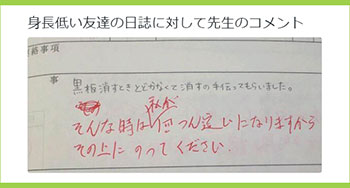 身長低い友達の日誌に対して先生のコメント
絡事項
事
黒板消すときとどかなくて消すの手伝ってもらいました。
私が
そんな時は四つん這いになりますから
その上にのってください.